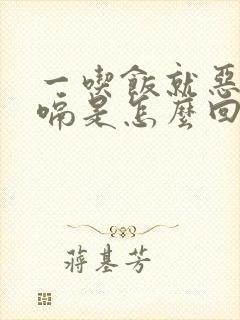 一喫飯就惡
嗝是怎麼回
蔣基芳